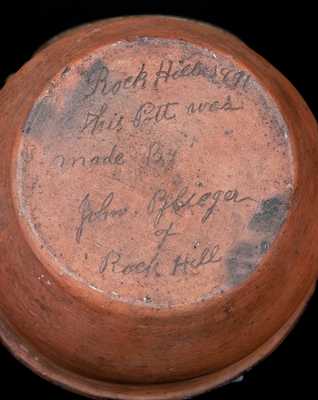 Rock Hill
This Pott was
made By
John.
of
Rock Hill